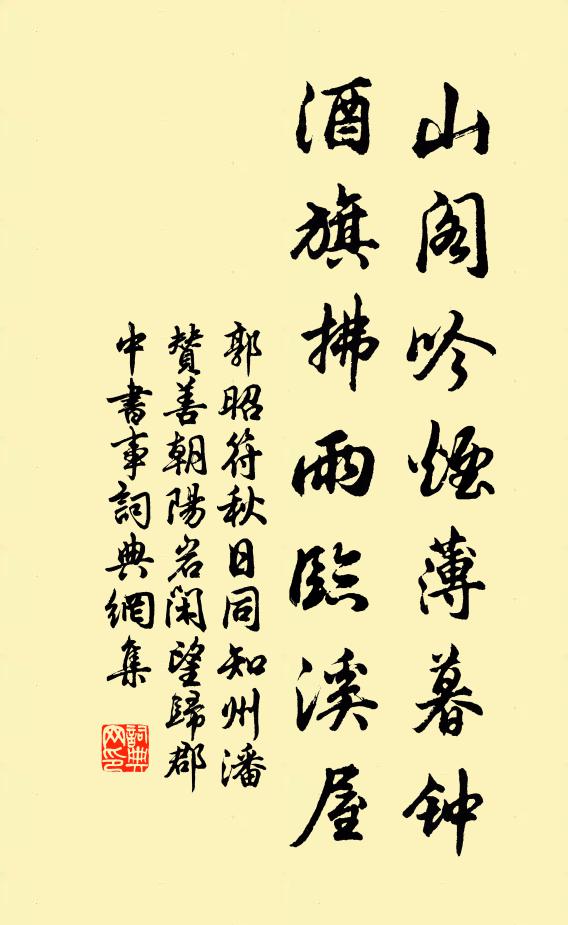 山阁吟煙薄暮钟
酒旗拂雨臨溪屋
郭昭符秋日同知州潘
贊善朝陽岩閑望歸郡
中書事詞典網集
詞典
网印